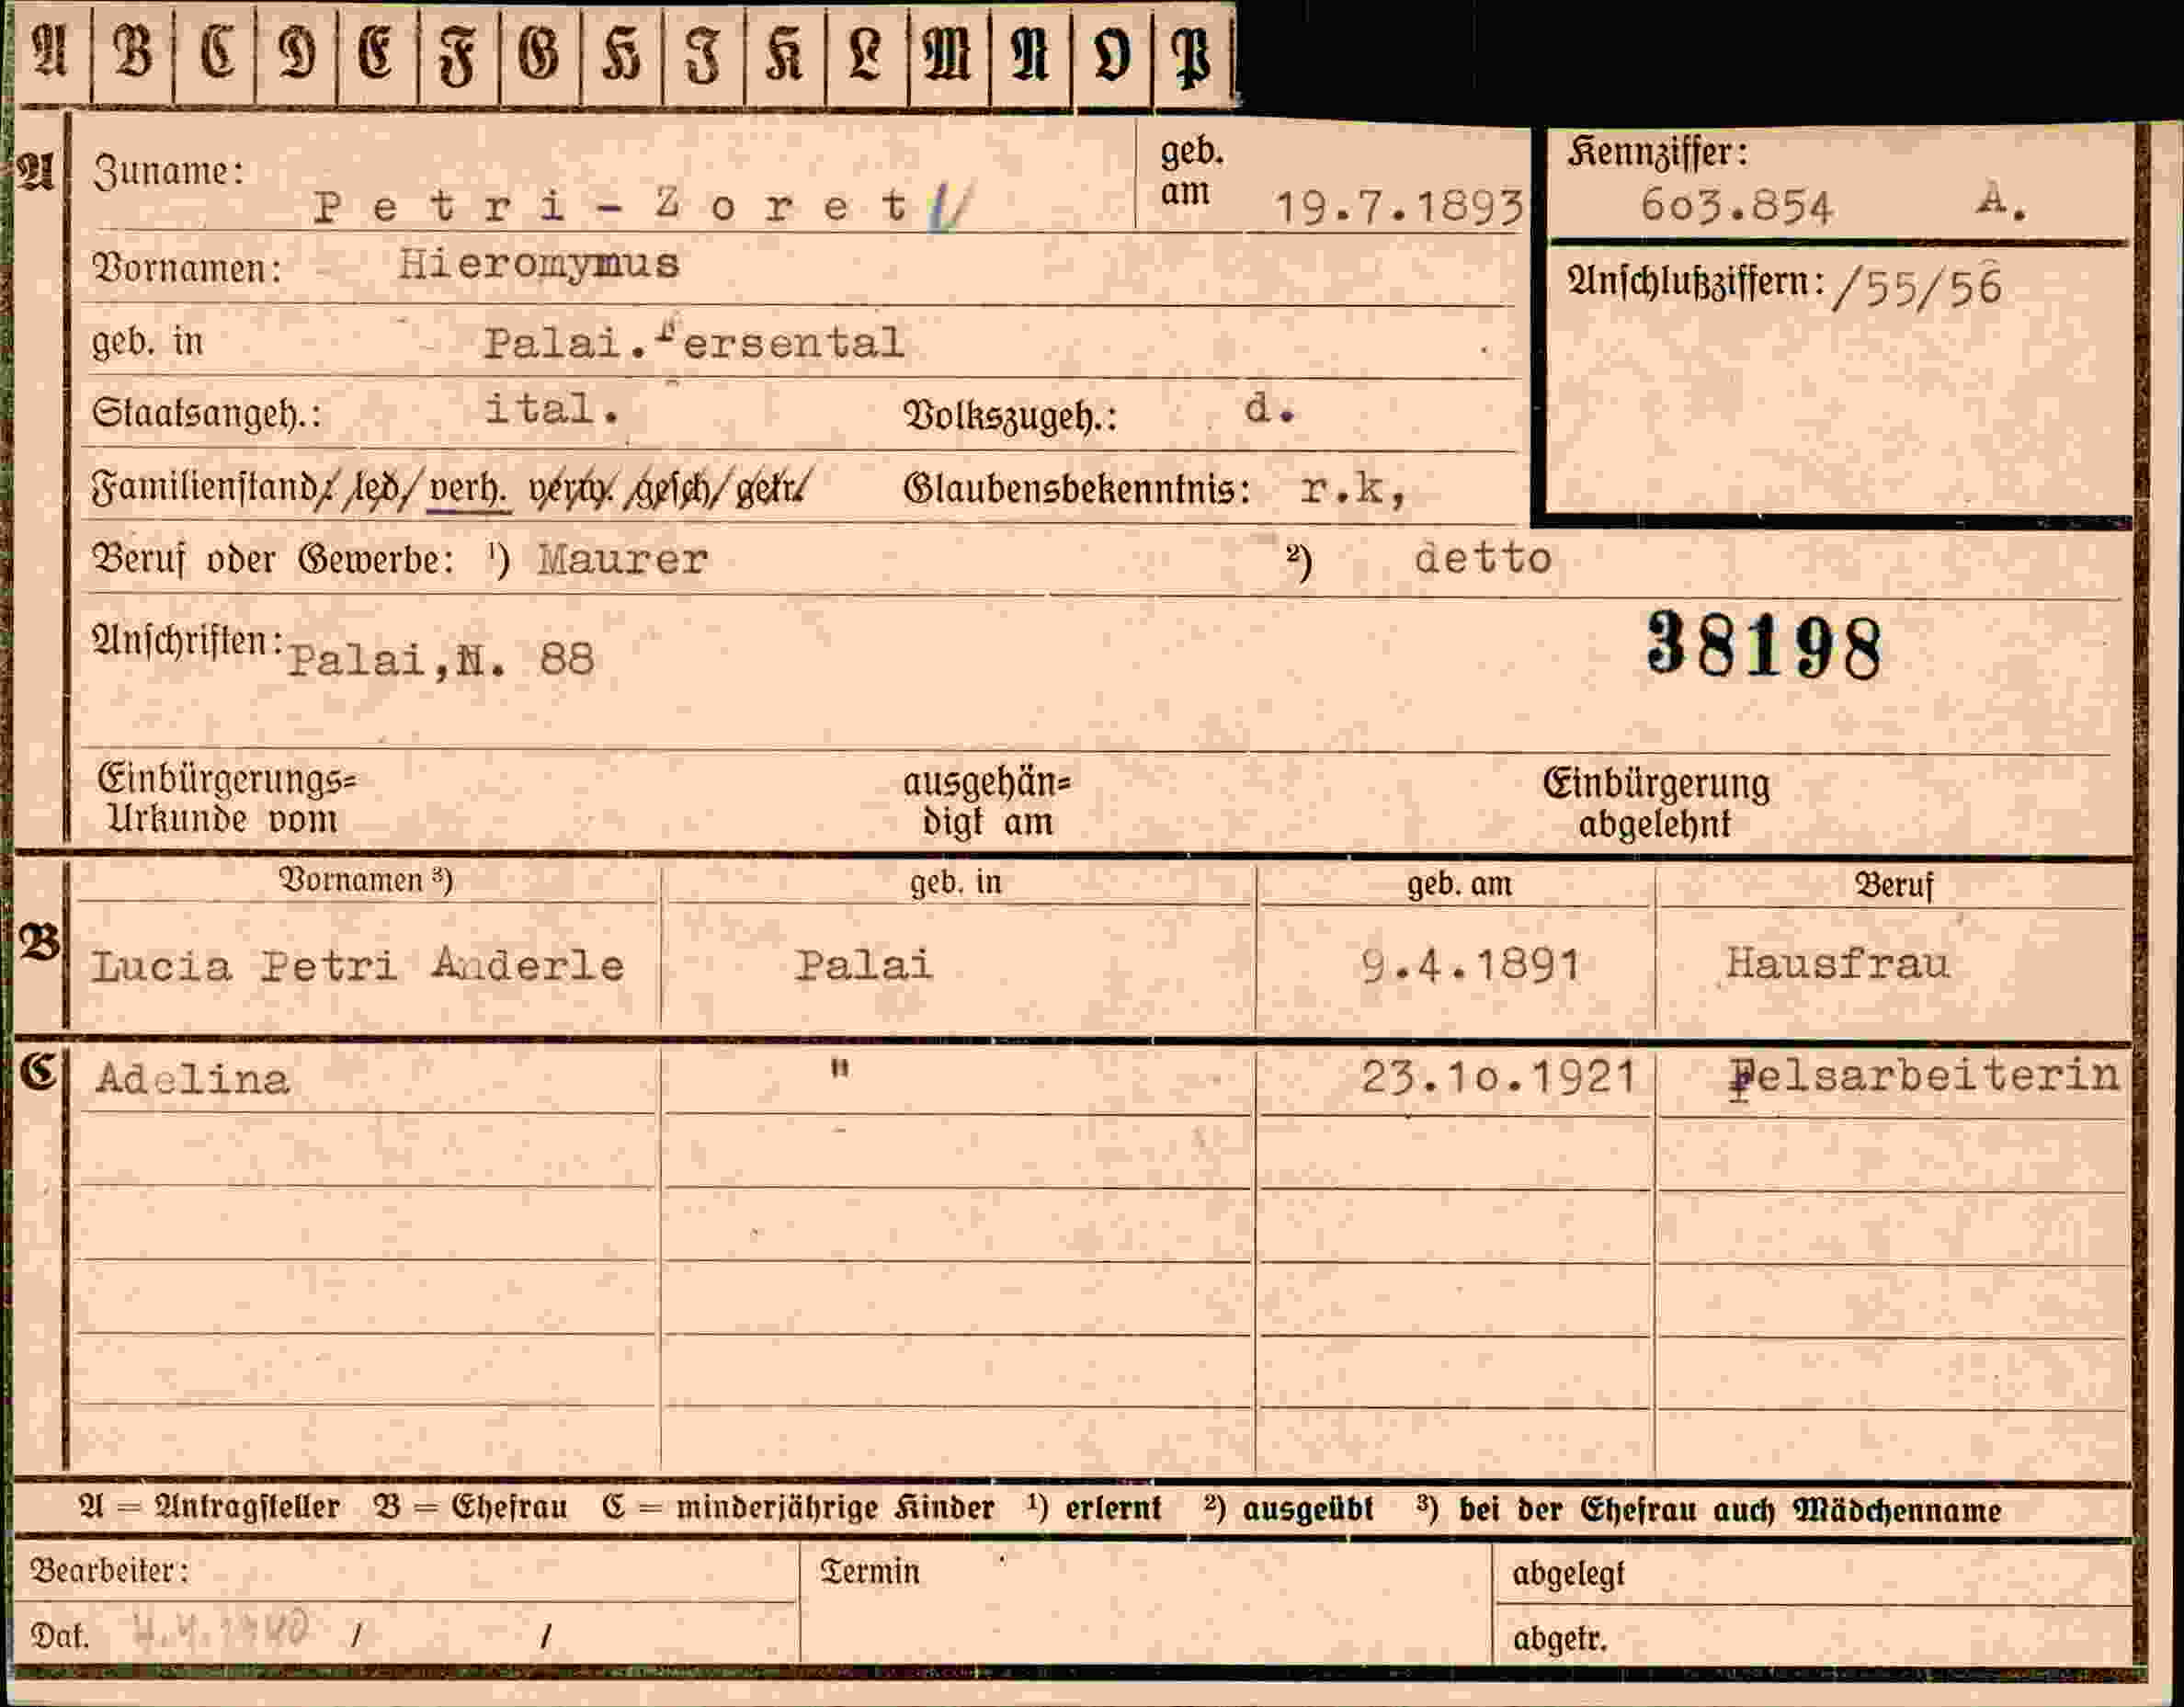 A B C D E F G H I K L M N O P
A Zuname: Petri-Zoret geb. am 19.7.1893 Kennziffer: 603.854 A.
Vornamen: Hieromymus
Anschlußziffern: /55/56
geb. in Palai. Fersental
Staatsangeh.: ital. Volkszugeh.: d.
Familienstand: led. verh. verw. gesch. getr. Glaubensbekenntnis: r.k,
Beruf oder Gewerbe: ¹) Maurer ²) detto
Anschriften: Palai,N. 88 38198
Einbürgerungs= Urkunde vom ausgehän= digt am Einbürgerung abgelehnt
Vornamen ³) geb. in geb. am Beruf
B Lucia Petri Anderle Palai 9.4.1891 Hausfrau
C Adelina " 23.10.1921 Felsarbeiterin
A = Antragsteller B = Ehefrau C = minderjährige Kinder ¹) erlernt ²) ausgeübt ³) bei der Ehefrau auch Mädchenname
Bearbeiter: Termin abgelegt
Dat. 4.4.1940 / / abgetr.